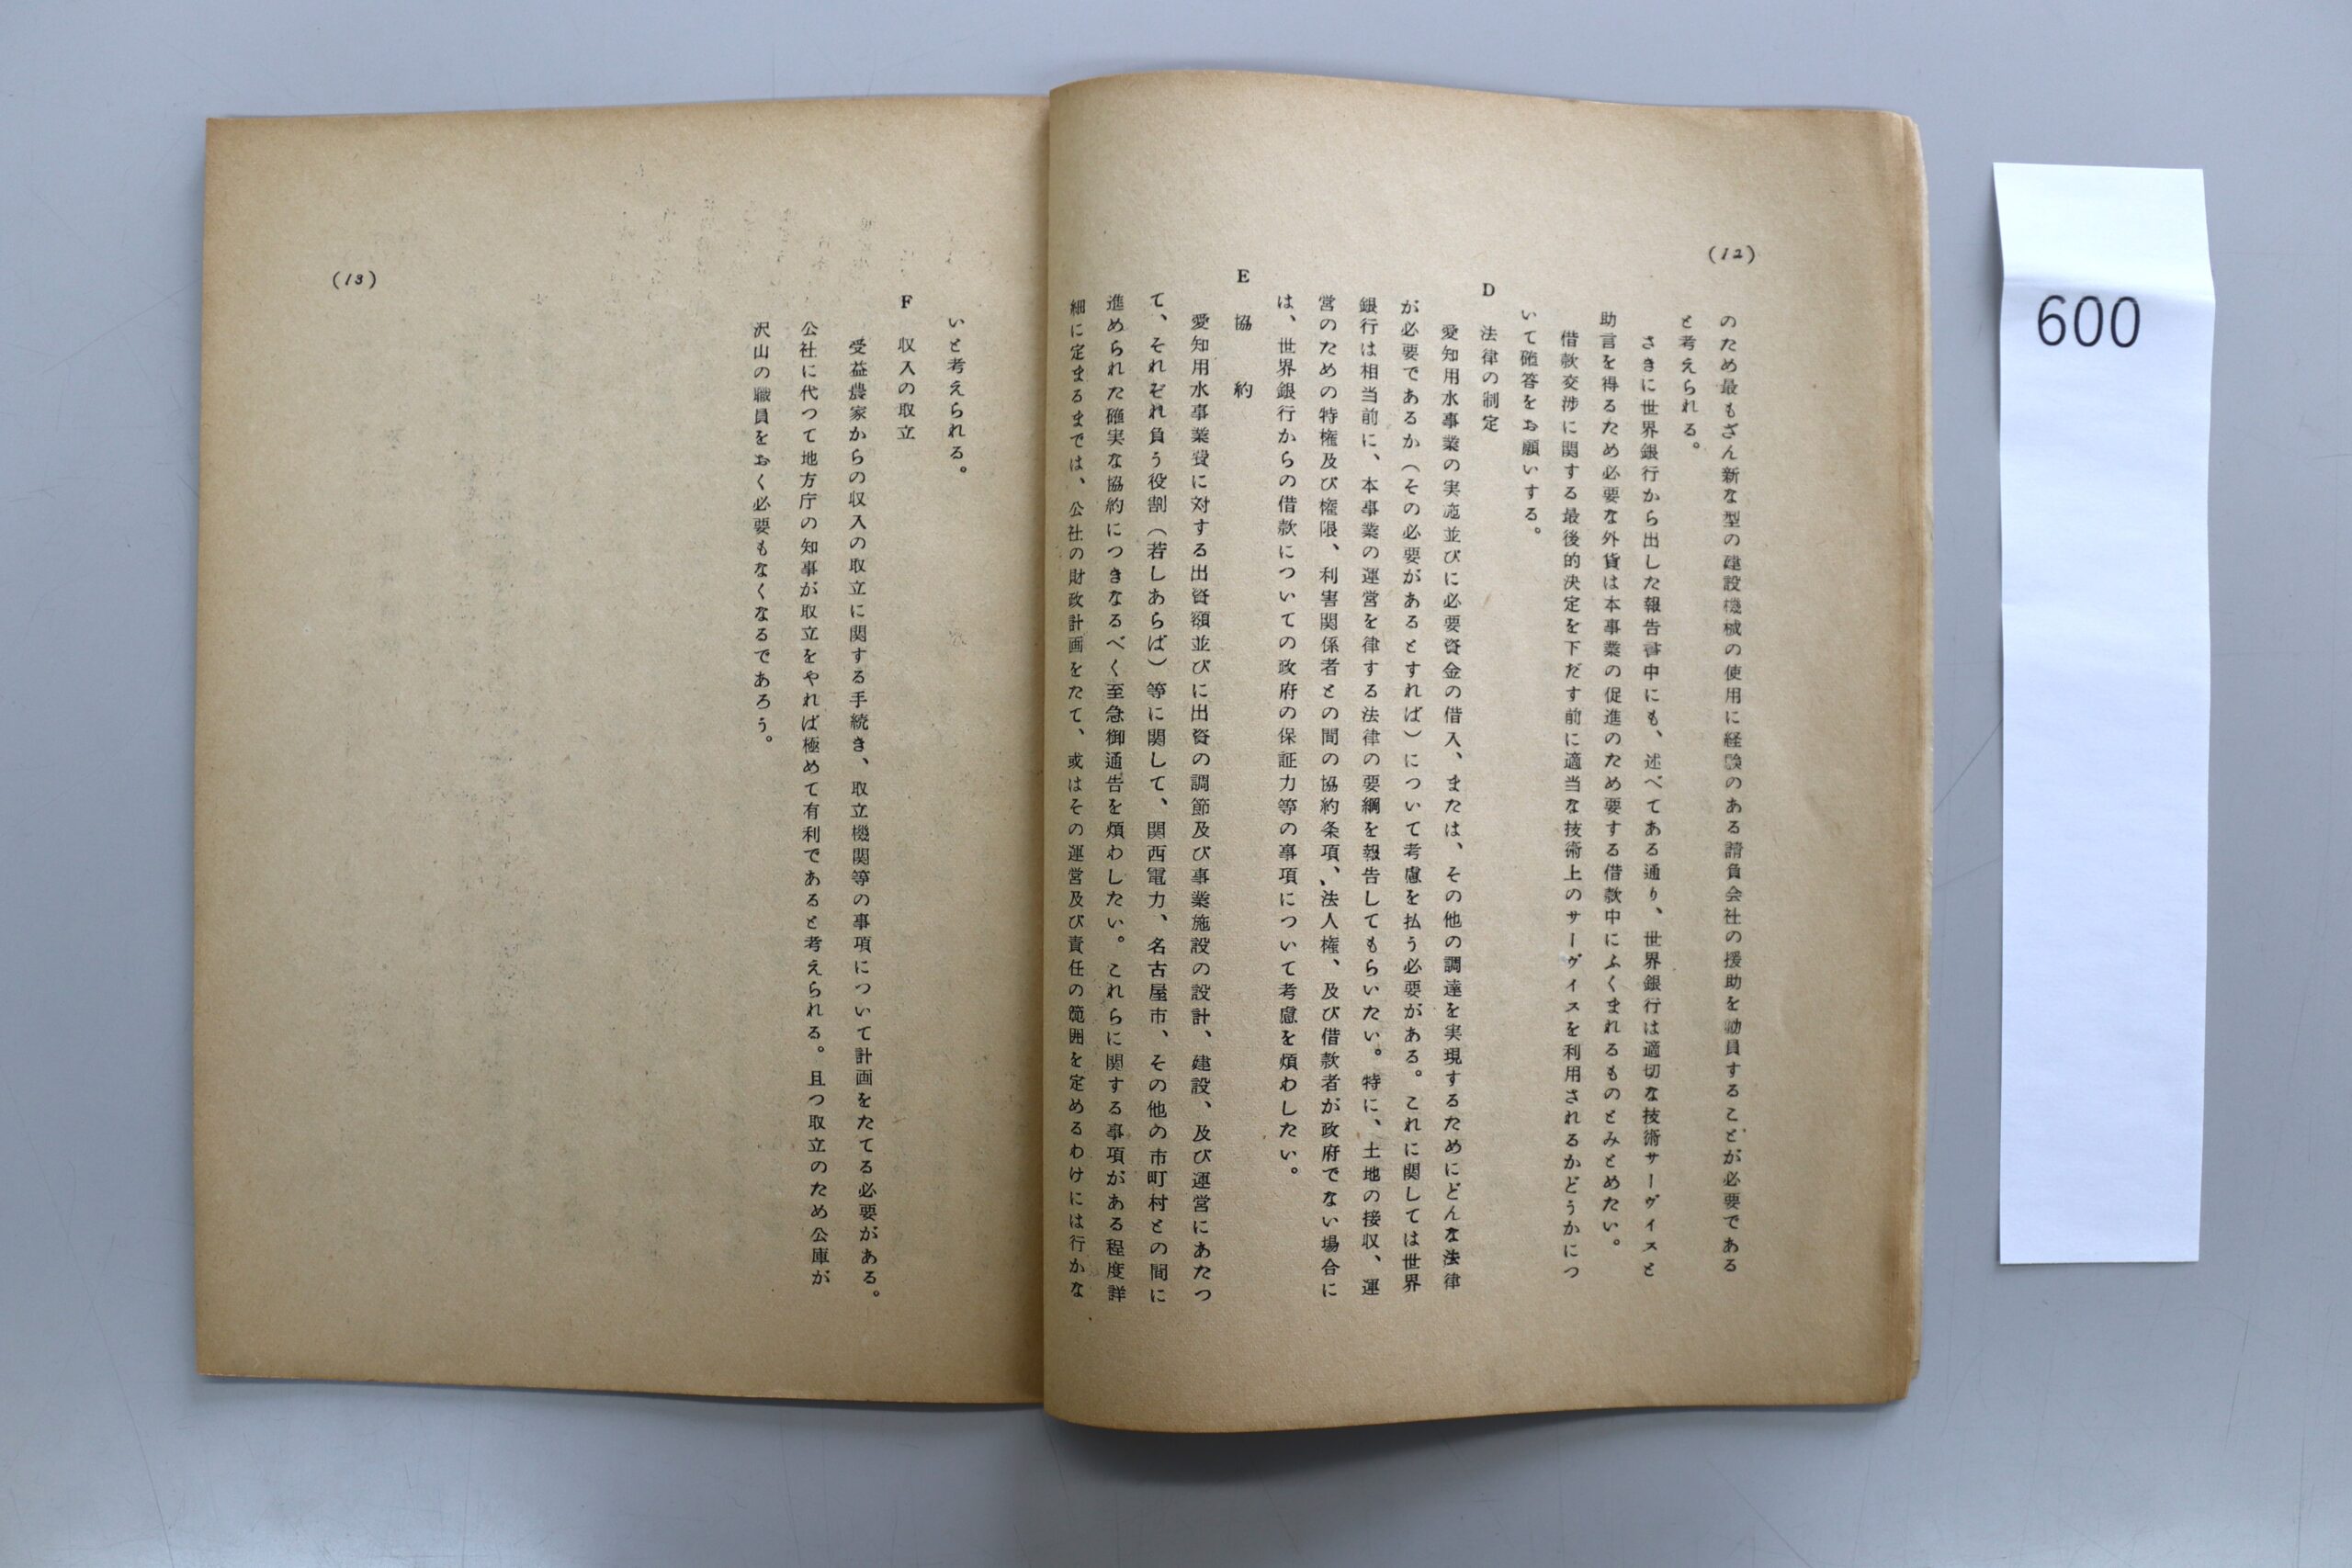 (12)
のため最もざん新な型の建設機械の使用に経験のある請負会社の援助を動員することが必要である
と考えられる。
さきに世界銀行から出した報告書中にも、述べてある通り、世界銀行は適切な技術サーヴィスと
助言を得るため必要な外貨は本事業の促進のため要する借款中にふくまれるものとみとめたい。
借款交渉に関する最後的決定を下だす前に適当な技術上のサーヴィスを利用されるかどうかにつ
いて確答をお願いする。
D 法律の制定
愛知用水事業の実施並びに必要資金の借入、または、その他の調達を実現するためにどんな法律
が必要であるか（その必要があるとすれば）について考慮を払う必要がある。これに関しては世界
銀行は相当前に、本事業の運営を律する法律の要綱を報告してもらいたい。特に、土地の接収、運
営のための特権及び権限、利害関係者との間の協約条項、法人権、及び借款者が政府でない場合に
は、世界銀行からの借款についての政府の保証力等の事項について考慮を煩わしたい。
E 協約
愛知用水事業費に対する出資額並びに出資の調節及び事業施設の設計、建設、及び運営にあたつ
て、それぞれ負う役割（若しあらば）等に関して、関西電力、名古屋市、その他の市町村との間に
進められた確実な協約につきなるべく至急御通告を煩わしたい。これらに関する事項がある程度詳
細に定まるまでは、公社の財政計画をたて、或はその運営及び責任の範囲を定めるわけには行かな
いと考えられる。
F 収入の取立
受益農家からの収入の取立に関する手続き、取立機関等の事項について計画をたてる必要がある。
公社に代つて地方庁の知事が取立をやれば極めて有利であると考えられる。且つ取立のため公庫が
沢山の職員をおく必要もなくなるであろう。
(13)
600